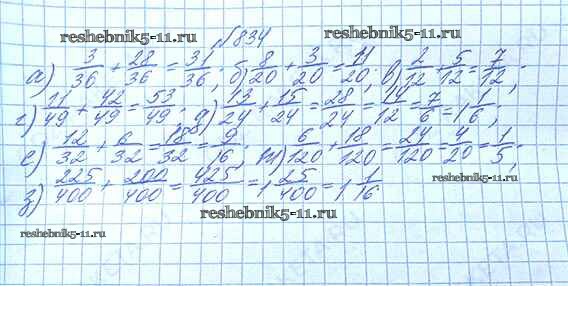 reshebnik5-11.ru №834 reshebnik5-11.ru
а) 3/36 + 28/36 = 31/36; б) 8/20 + 3/20 = 11/20; в) 2/12 + 5/12 = 7/12;
г) 11/49 + 42/49 = 53/49; д) 13/24 + 15/24 = 28/24 = 14/12 = 7/6 = 1 1/6;
е) 12/32 + 6/32 = 18/32 = 9/16; ж) 6/120 + 18/120 = 24/120 = 4/20 = 1/5;
з) 225/400 + 200/400 = 425/400 = 1 25/400 = 1 1/16
reshebnik5-11.ru
reshebnik5-11.ru
reshebnik5-11.ru